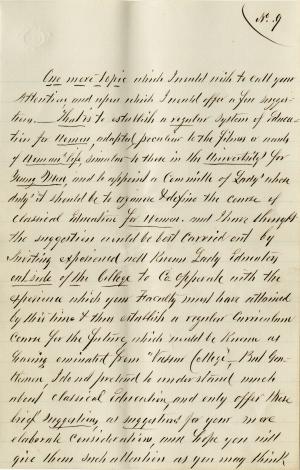 No. 9
One more Topic which I would wish to call your
Attention, and upon which I would offer a few sugges-
tions. That is to establish a regular System of Educa-
tion for Women, adapted peculiar to the fitness & wants
of Woman's life, similar to those in the University for
Young Men, and to appoint a Committe of Lady's whose
duty it should be to organise & define the Course of
Classical Education for Women. and I have thought
the suggestion could be best carried out by
Inviting experienced well Known Lady Educators
outside of the College to Co opperate with the
experience which your Faculty must have attained
by this time & thus establish a regular Curriculum
Course for the future, which would be Known as
having eminated from "Vassar College". But Gen-
tlemen, I do not pretend to understand much
about classical education, and only offer these
brief suggestions, as suggestions for your more
elaborate Consideration, and hope you will
give them such attention as you may think